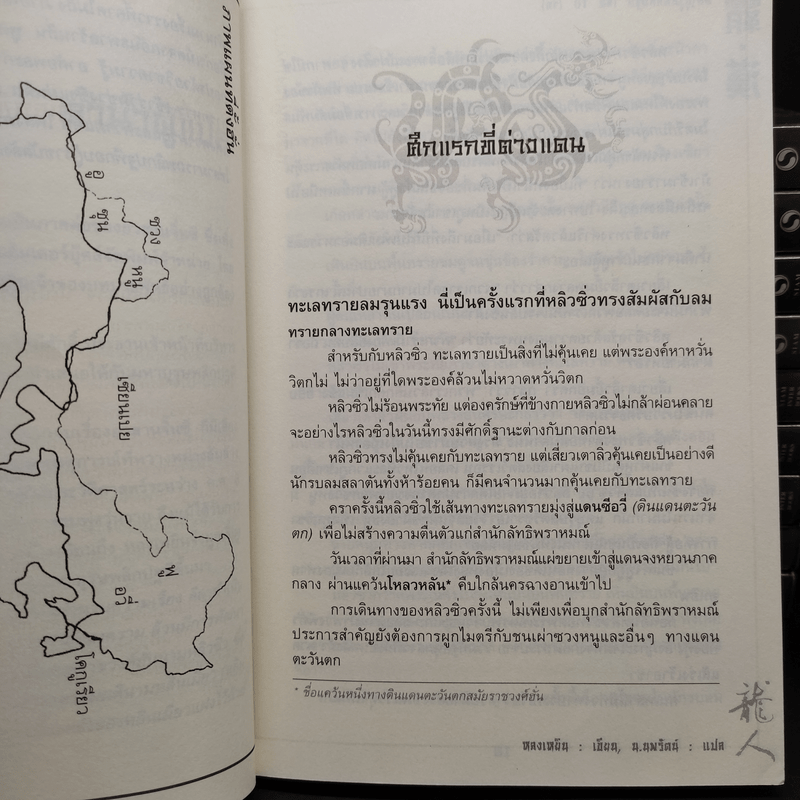 ภาพแผนที่ดั้งฮั่น
อู
ซุน
ซวง
หนู
เซียนเปย
ฟู
อวี่
โคกูเรียว
ศึกแรกที่ต่างแดน
ทะเลทรายลมรุนแรง นี่เป็นครั้งแรกที่หลิวซิ่วทรงสัมผัสกับลม
ทรายกลางทะเลทราย
สำหรับกับหลิวซิ่ว ทะเลทรายเป็นสิ่งที่ไม่คุ้นเคย แต่พระองค์หาหวั่น
วิตกไม่ ไม่ว่าอยู่ที่ใดพระองค์ล้วนไม่หวาดหวั่นวิตก
หลิวซิ่วไม่ร้อนพระทัย แต่องครักษ์ที่ข้างกายหลิวซิ่วไม่กล้าผ่อนคลาย
จะอย่างไรหลิวซิ่วในวันนี้ทรงมีศักดิ์ฐานะต่างกับกาลก่อน
หลิวซิ่วทรงไม่คุ้นเคยกับทะเลทราย แต่เสี่ยวเตาลิ่วคุ้นเคยเป็นอย่างดี
นักรบลมสลาตันทั้งห้าร้อยคน ก็มีคนจำนวนมากคุ้นเคยกับทะเลทราย
คราครั้งนี้หลิวซิ่วใช้เส้นทางทะเลทรายมุ่งสู่แดนซีอวี้ (ดินแดนตะวัน
ตก) เพื่อไม่สร้างความตื่นตัวแก่สำนักลัทธิพราหมณ์
วันเวลาที่ผ่านมา สำนักลัทธิพราหมณ์แผ่ขยายเข้าสู่แดนจงหยวนภาค
กลาง ผ่านแคว้นโหลวหลัน* คืบใกล้นครฉางอานเข้าไป
การเดินทางของหลิวซิ่วครั้งนี้ ไม่เพียงเพื่อบุกสำนักลัทธิพราหมณ์
ประการสำคัญยังต้องการผูกไมตรีกับชนเผ่าซวงหนูและอื่นๆ ทางแดน
ตะวันตก
* ชื่อแคว้นหนึ่งทางดินแดนตะวันตกสมัยราชวงศ์ฮั่น
หลงเหยิน : เขียน, น.นพรัตน์ : แปล
龍人